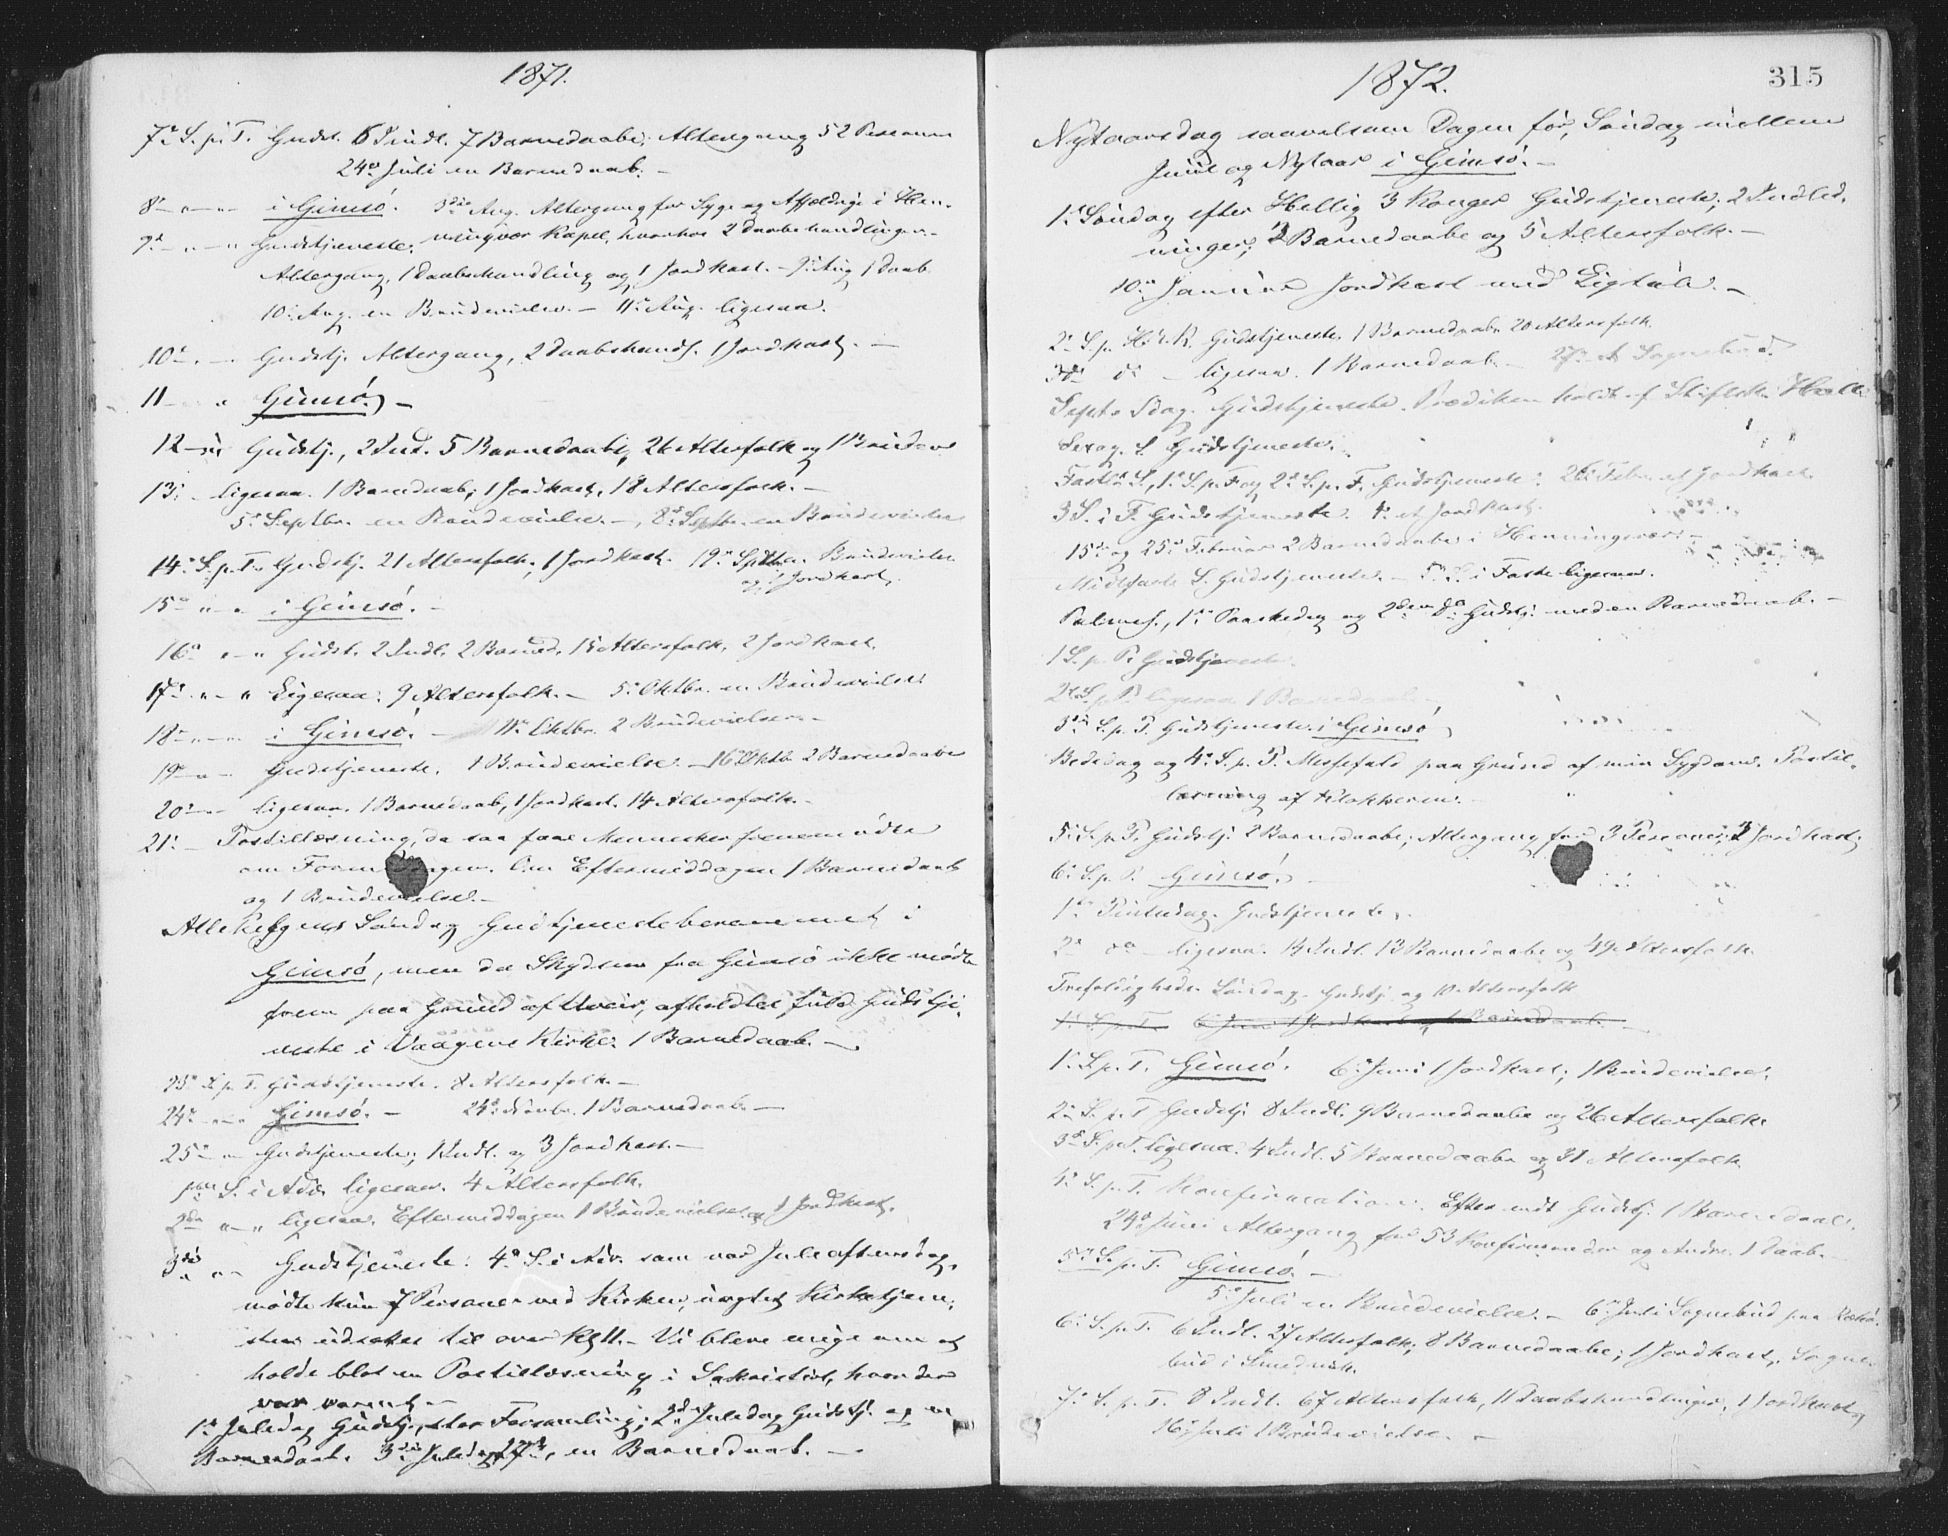 1871.
7de S. p. T. Gudst. 6 Indl. 7 Barnedaabe; Altergang 52 Personer
24de Juli en Barnedaab. –
8de – " – " i Gimsø. 3die Aug. Altergang for Syge og Affældige i Hen-
9de – " – " Gudstjeneste. ningvær Kapel, hvorhos 2 Daabshandlinger. –
Altergang, 1 Daabshandling og 1 Jordkast. – 9de Aug 1 Daab
10de Aug. en Brudevielse. – 11de Aug. ligesaa.
10de " – Gudstj. Altergang, 2 Daabshandl. 1 Jordkast. –
11 – " Gimsø. –
12 – " Gudstj., 2 Ind. 5 Barnedaab, 26 Altersfolk og 1 Brudev
13: – ligesaa. 1 Barnedaab; 1 Jordkast, 18 Altersfolk. –
5te Septbr. en Brudevielse. –, 8de Septbr. en Brudevielse
14de S. p. T. Gudstj. 21 Altersfolk, 1 Jordkast. 19de Septbr. Brudevielse
og 1 Jordkast.
15de " – " i Gimsø. –
16de " – " Gudst. 2 Indl. 2 Barned. 15 Altersfolk, 2 Jordkast.
17de " – " Ligesaa: 9 Altersfolk. – 5te Oktbr. en Brudevielse
18de – " – " i Gimsø. – Oktbr. 2 Brudevielser. –
19de – " – Gudstjeneste. 1 Brudevielse. – 16de Oktb 2 Barnedaabe
20de – " – ligesaa. 1 Barnedaab, 1 Jordkast. 14 Altersfolk. –
21: – Postillæsning, da saa faae Mennesker fremmødte
om Formiddagen. Om Eftermiddagen 1 Barnedaab
og 1 Brudevielse. –
Allehelgens Søndag Gudstjeneste berammet i
Gimsø, men da Skydsen fra Gimsø ikke mødte
frem paa Grund af Uveir, afholdtes fuld Gudstje-
neste i Vaagens Kirke. 1 Barnedaab. –
23de S. p. T. Gudstjeneste. 8 Altersfolk. –
24de – " – Gimsø. – 24de Novbr. 1 Barnedaab. –
25de – " Gudstjeneste; 1 Indl. og 3 Jordkast. –
1ste S. i Adv. ligesaa. 4 Altersfolk.
2den " – " ligesaa. Eftermiddagen 1 Brudevielse og 1 Jordkast.
3die " – Gudstjeneste: 4de S. i Adv. som var Juleaftensdag,
mødte kun 7 Personer ved Kirken, uagtet Kirketjene-
sten udsattes til over Kl. 11. – Vi bleve enige om at
holde blot en Postillæsning i Sakristiet, hvor der
var varmt. –
1ste Juledag Gudstj., stor Forsamling; 2den Juledag Gudstj. og en
Barnedaab. 3die Juledag, 27de, en Barnedaab. –
1872.
315
Nytaarsdag saavelsom Dagen før, Søndag mellem
Juul og Nytaar i Gimsø. –
1ste Søndag efter Hellig 3 Konger Gudstjeneste; 2 Indled-
ninger; 2 Barnedaabe og 5 Altersfolk. –
10de Januar Jordkast med Ligtale. –
2den S. p. H. 3. K. Gudstjeneste, 1 Barnedaab 20 Altersfolk.
3die do – ligesaa. 1 Barnedaab – 27de et Sognebud.
Sept. Sdag. Gudstjeneste. Prædiken holdt af
Sexag. S. Gudstjeneste.
Fastel. S., 1ste S. p. F. og 2den S. p. F. Gudstjeneste: 26de Febr. et Jordkast.
3 S. i F. Gudstjeneste. et Jordkast.
15de og 25de Februar 2 Barnedaabe i Henningsvær. –
Midfaste S. Gudstjeneste. – 5te S. i Faste ligesaa.
Palmes., 1ste Paaskedag og 2den Do Gudstj. med en Barnedaab. –
1 S. p. P. Gudstjeneste.
2den S. p. P. ligesaa 1 Barnedaab.
3die S. p. P. Gudstjeneste i Gimsø
Bededag og 4de S. p. P. Messefald paa Grund af min Sygdom. Postil-
læsning af Klokkeren.
5te S. p. P. Gudstj. 2 Barnedaabe; Altergang for 3 Personer; 3 Jordkast.
6te S. p. P. Gimsø. –
1ste Pintsedag. Gudstjeneste.
2den do – ligesaa. 14 Indl. 13 Barnedaabe og 49 Altersfolk.
Trefoldigheds Søndag. Gudstj. og 10 Altersfolk
1ste S. p. T. 6 Juni 1 Jordkast og 1 Barnedaab. –
1ste S. p. T. Gimsø. 6te Juni 1 Jordkast; 1 Brudevielse.
2den S. p. T. Gudstj. 8 Indl. 9 Barnedaabe og 26 Altersfolk.
3die S. p. T. ligesaa: 4 Indl. 5 Barnedaabe og 31 Altersfolk.
4de S. p. T. Konfirmation. Efter endt Gudstj. 1 Barnedaab.
24de Juni Altergang for 53 Konfirmander og Andre. 1 Daab. –
5te S. p. T. Gimsø. –
5te Juli en Brudevielse. – 6te Juli Sognebud paa
6te S. p. T. 6 Indl. 27 Altersfolk; 8 Barnedaabe; 1 Jordkast, Sogne-
bud i
7de S. p. T. 8 Indl. 67 Altersfolk, 11 Daabshandlinger, 1 Jordkast
16de Juli 1 Brudevielse. –